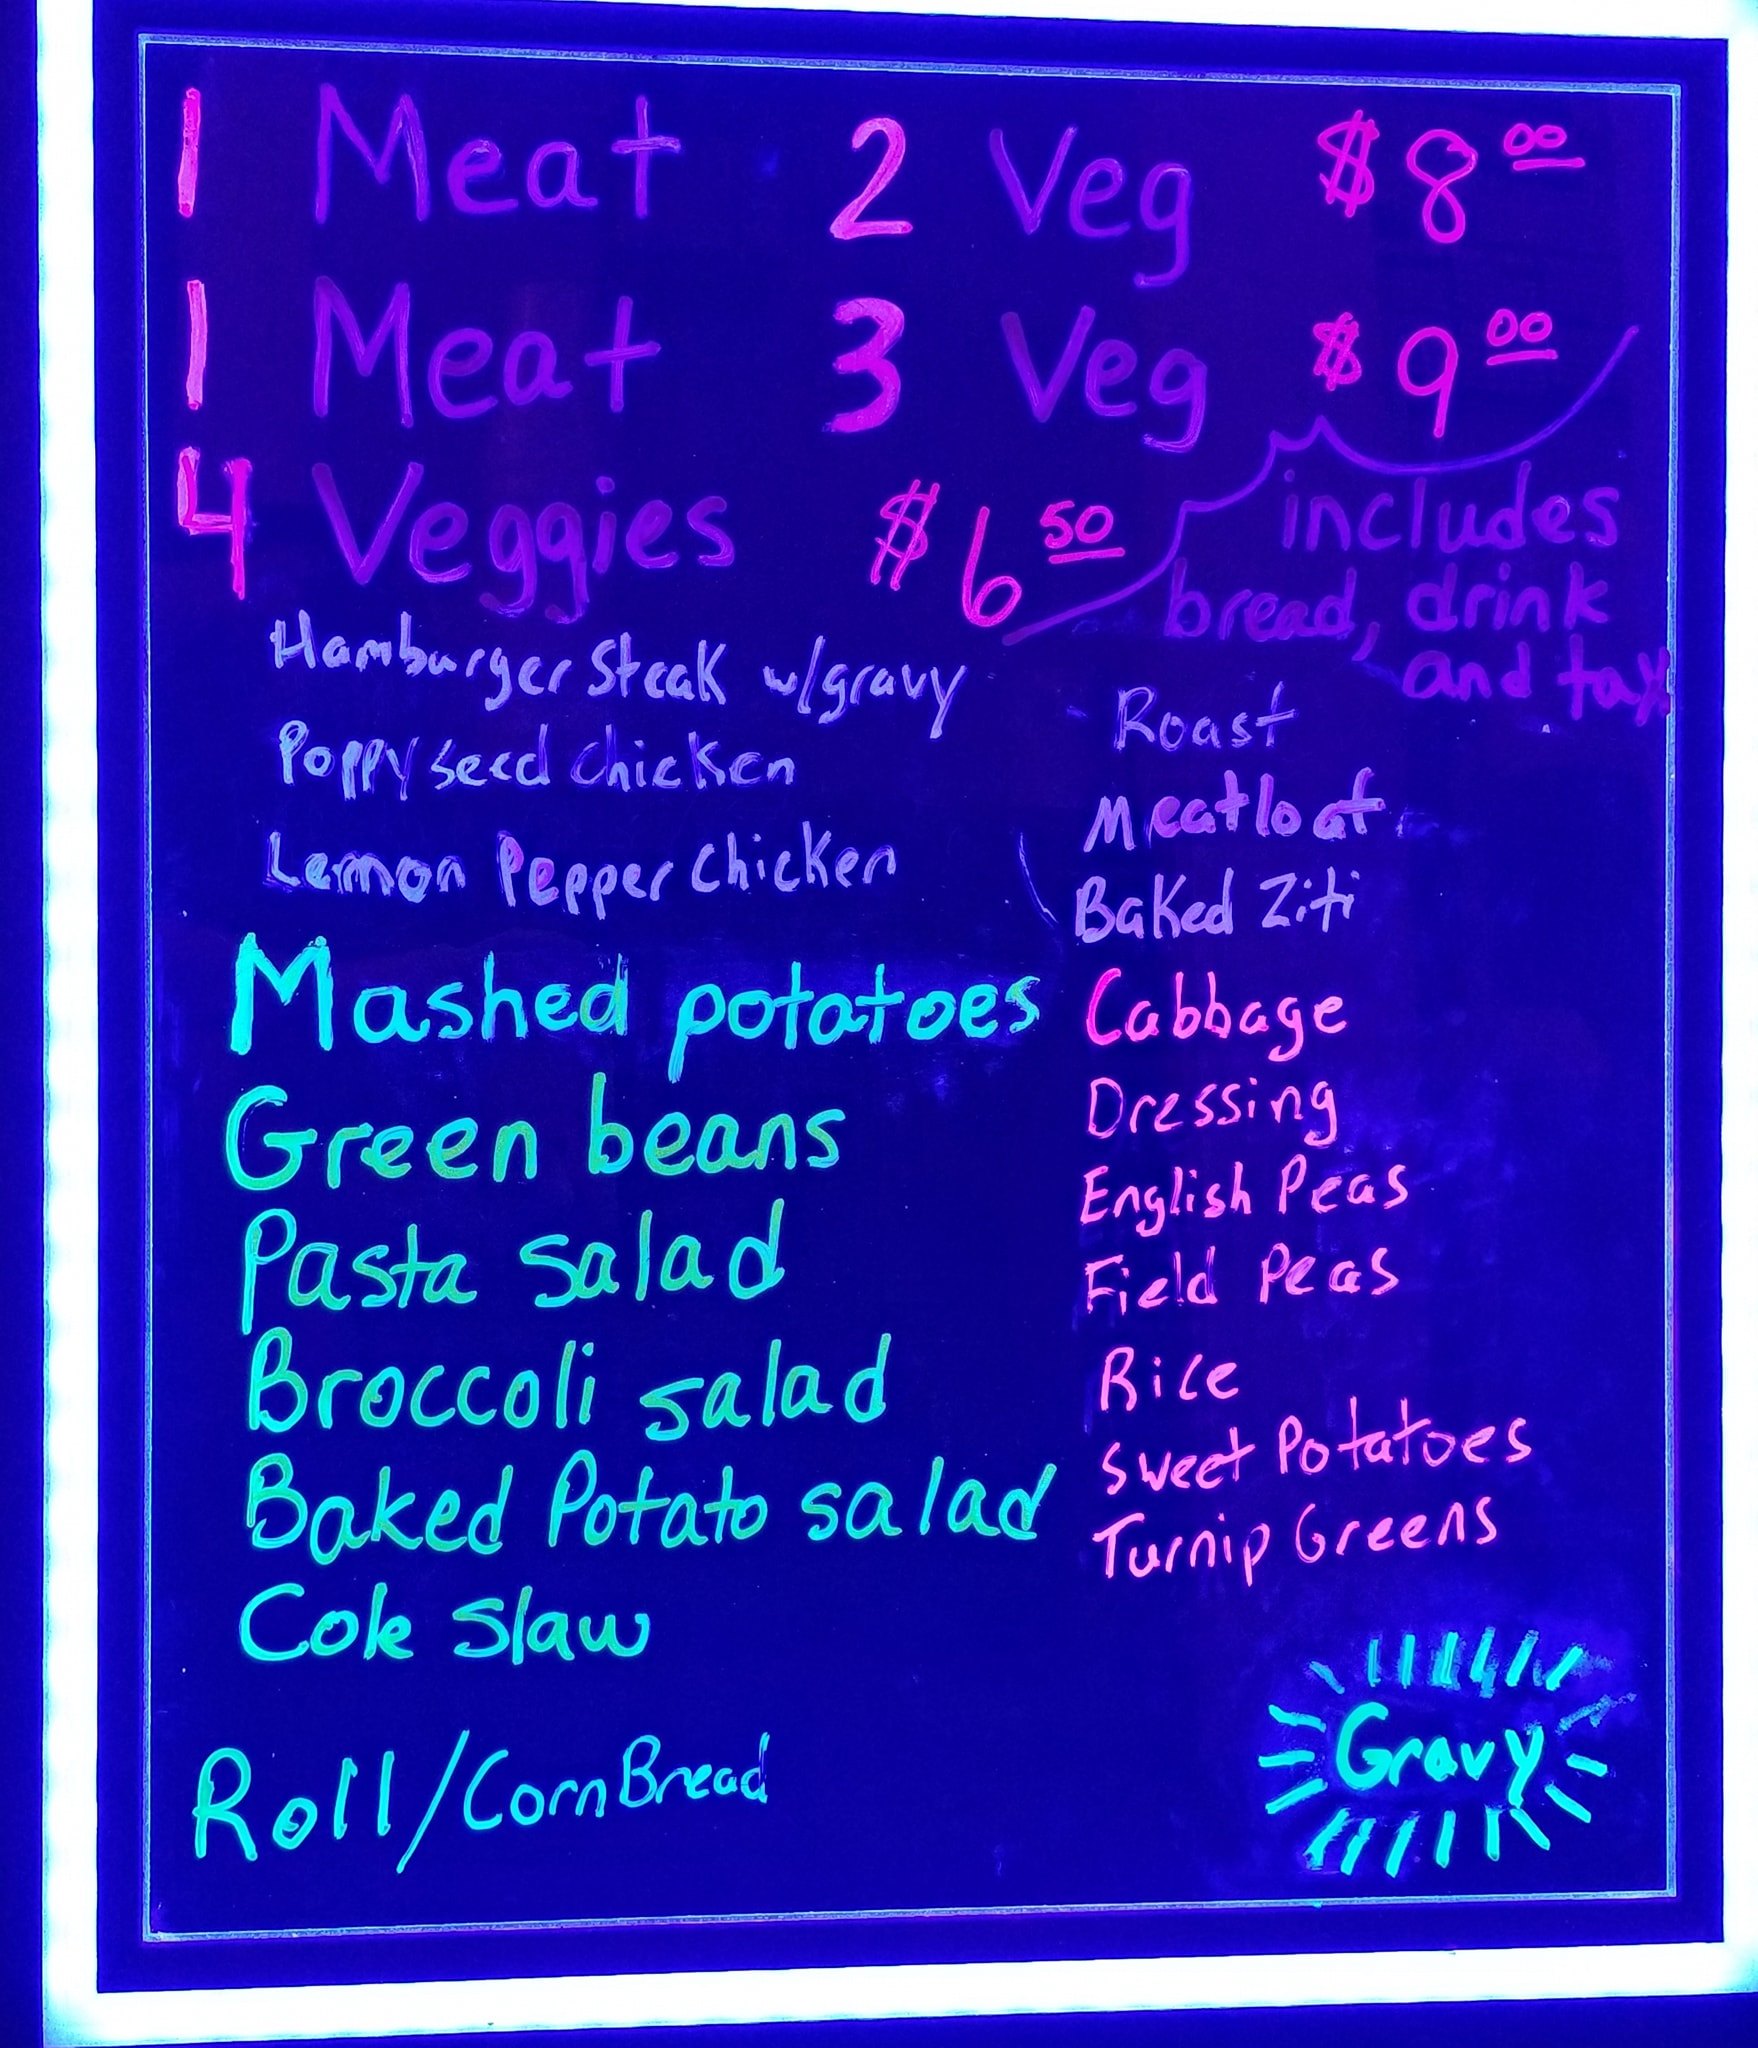 1 Meat 2 Veg $8.00
1 Meat 3 Veg $9.00
4 Veggies $6.50
includes
bread, drink
and tax
Hamburger Steak w/gravy
Poppyseed chicken
Lemon Pepper chicken
Roast
Meatloaf
Baked Ziti
Mashed potatoes
Green beans
Pasta salad
Broccoli salad
Baked Potato salad
Cole slaw
Cabbage
Dressing
English Peas
Field Peas
Rice
Sweet Potatoes
Turnip Greens
Roll/CornBread
Gravy